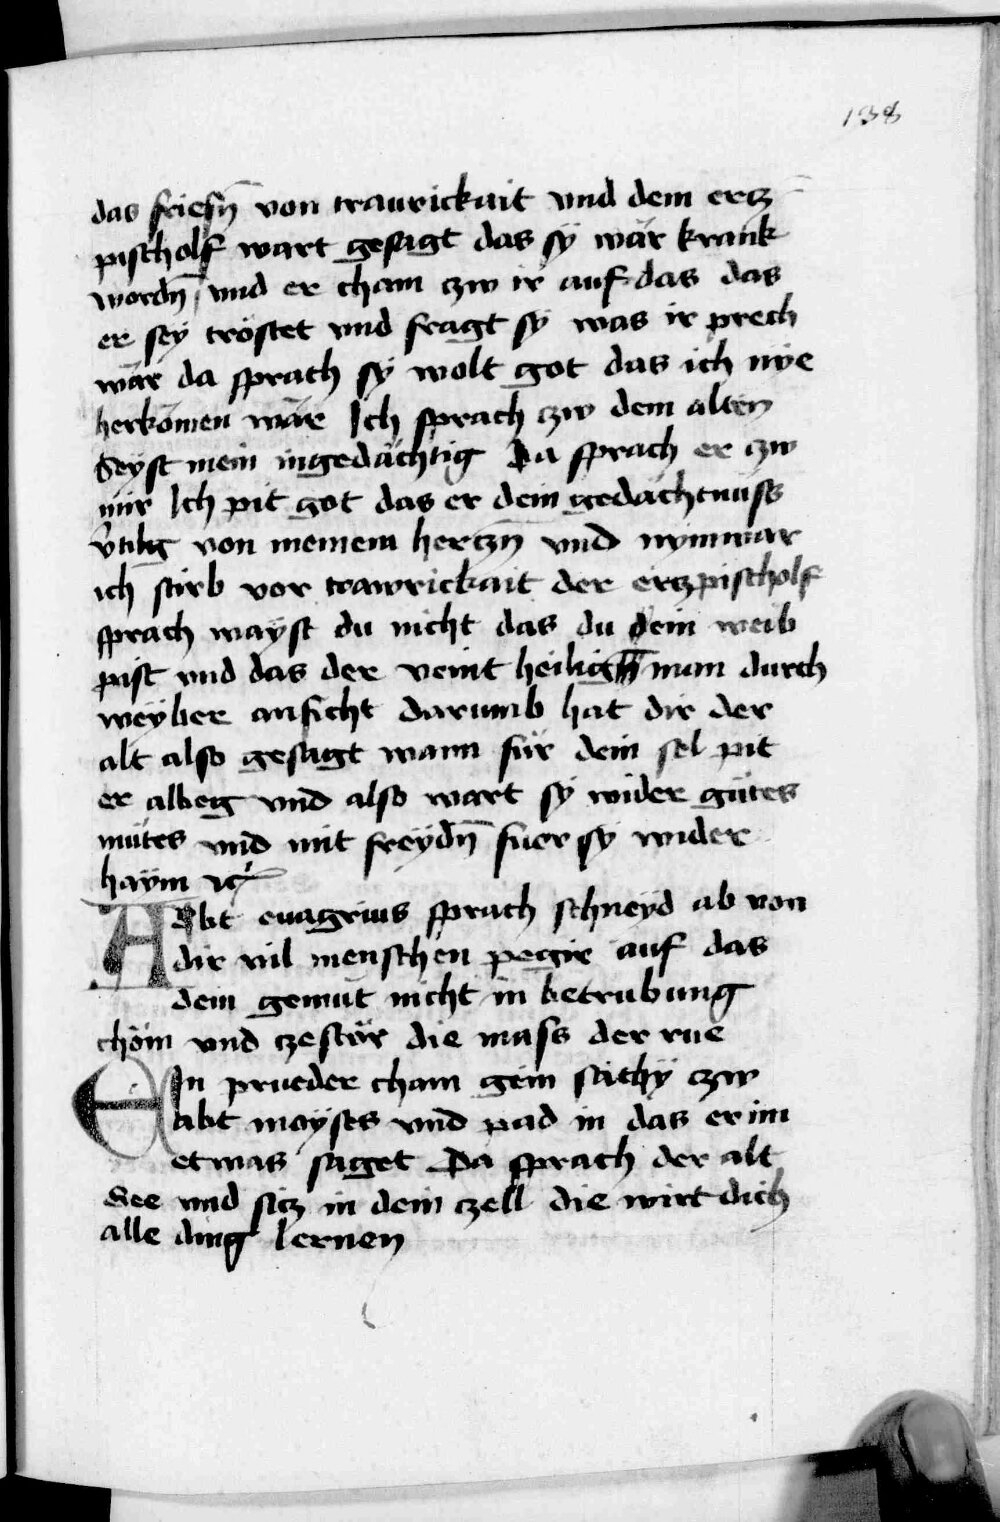 138
das friesn̄ von traurickait vnd dem ercz
pischolf wart gesagt das sÿ wär krank
wordn̄ vnd er cham czw ir auf das das
er sey tröstet vnd fragt sÿ was ir prech
wär da sprach sÿ wolt got das ich nÿe
herkömen wär Ich sprach czw dem alten
Seyst mein ingedächtig Da sprach er czw
mir Ich pit got das er dein gedächtnuss
vͤtilig von meinem herczn̄ vnd nymmar
ich stirb vor trawrickait der erczpischolf
sprach wayst du nicht das du dein weib
pist vnd das der veint heilign̄ man durch
weÿber ansicht darumb hat dir der
alt also gesagt wann für dein sel pit
er albeg vnd also wart sÿ wider gütes
mütes vnd mit freÿdn̄ fuer sÿ wider
haÿm ꝛc
Abt euagrius sprach schneÿd ab von
dir vil menschen pegir auf das
dein gemüt nicht in betrubung
chöm vnd czestör die mass der rue
Ein prueder cham gein scithÿ czw
abt moÿses vnd pad in das er im
etwas saget Da sprach der alt
See vnd sicz in dein czell die wirt dich
alle ding lernen